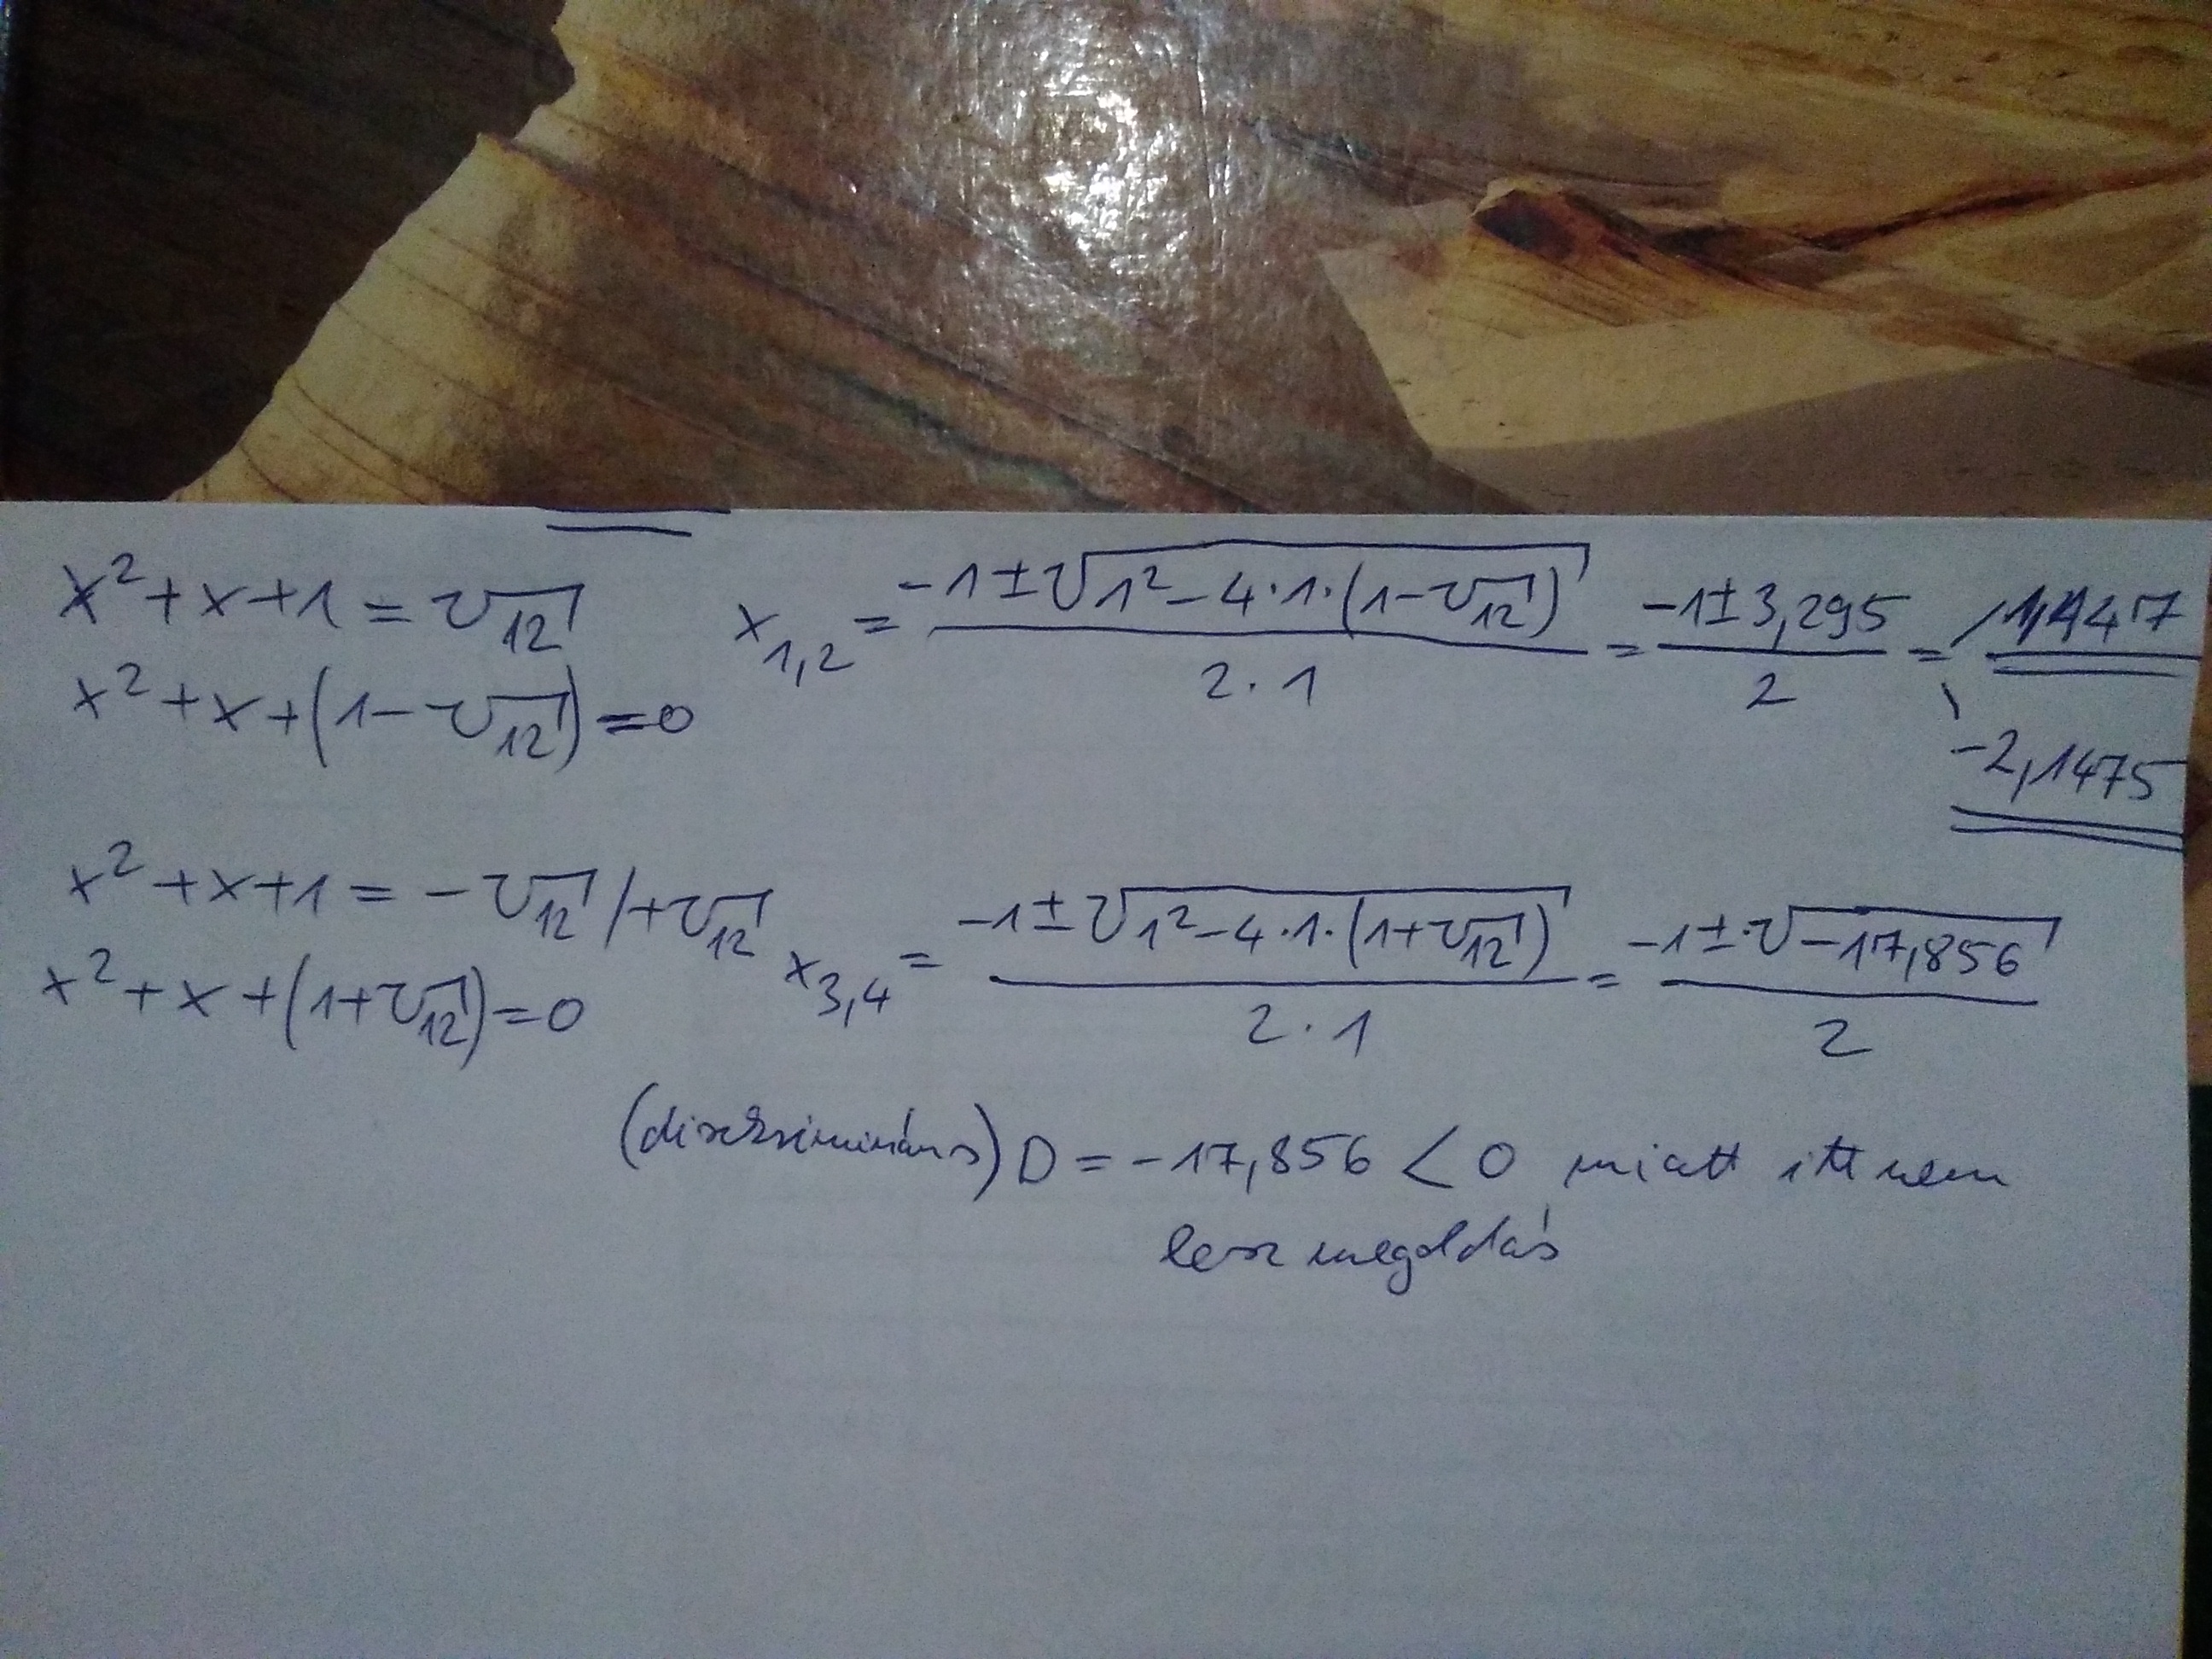 x²+x+1=√12
x²+x+(1-√12)=0
x1,2=(-1±√(1²-4·1·(1-√12)))/(2·1)=(-1±3,295)/2=
-2,1475
x²+x+1=-√12 /+√12
x²+x+(1+√12)=0
x3,4=(-1±√(1²-4·1·(1+√12)))/(2·1)=(-1±√-17,856)/2
(diszkrimináns) D=-17,856<0 miatt itt nem
lesz megoldás